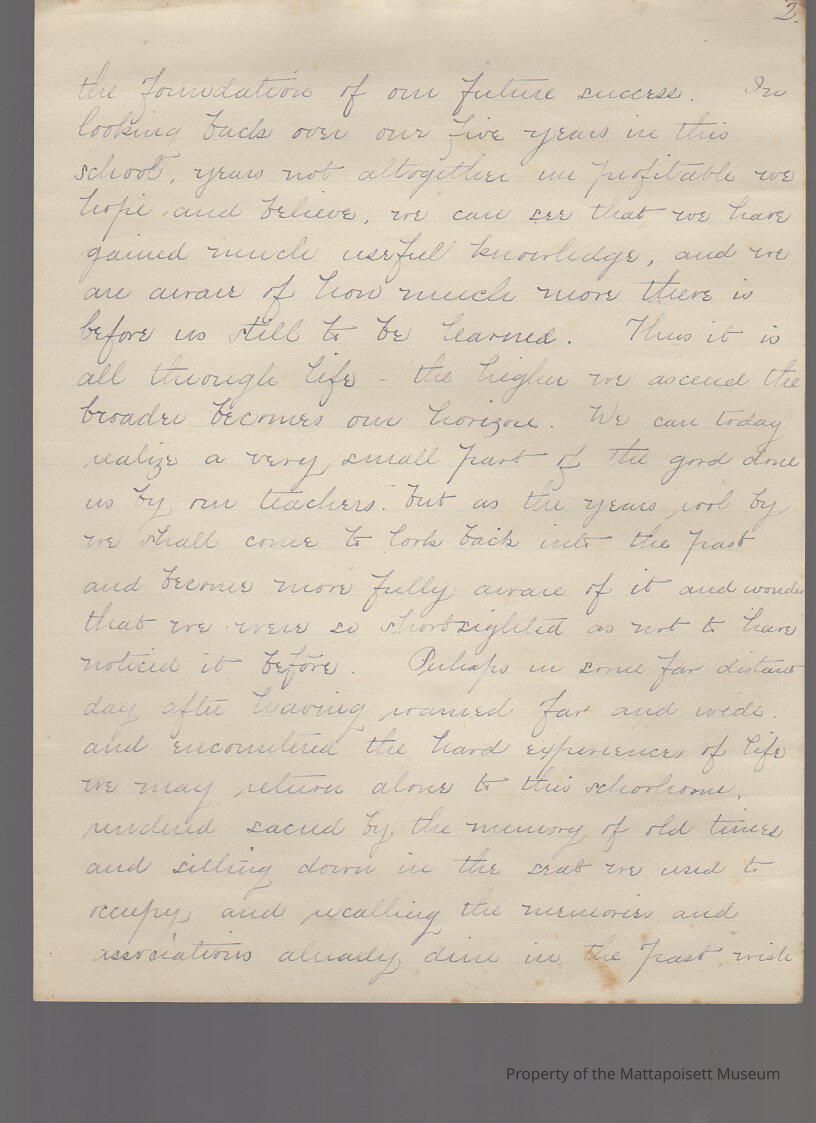 2.
the foundation of our future success. In
looking back over our five years in this
school, years not altogether un profitable we
hope and believe, we can see that we have
gained much useful knowledge, and we
are aware of how much more there is
before us still to be learned. Thus it is
all through life - the higher we ascend the
broader becomes our horizon. We can today
realize a very small part of the good done
us by our teachers. but as the years roll by
we shall come to look back into the past
and become more fully aware of it and wonder
that we were so shortsighted as not to have
noticed it before. Perhaps in some far distant
day after having roamed far and wide.
and encountered the hard experiences of life
we may return alone to this schoolroom,
rendered sacred by the memory of old times
and sitting down in the seat we used to
occupy, and recalling the memories and
associations already dim in the past, wish
Property of the Mattapoisett Museum